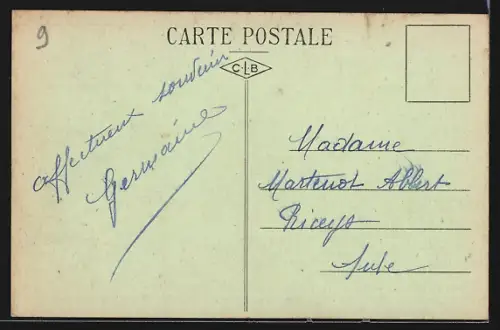 9
CARTE POSTALE
C.L.B
affectueux souvenir
Germaine
Madame
Martenot Albert
Riceys
Aube